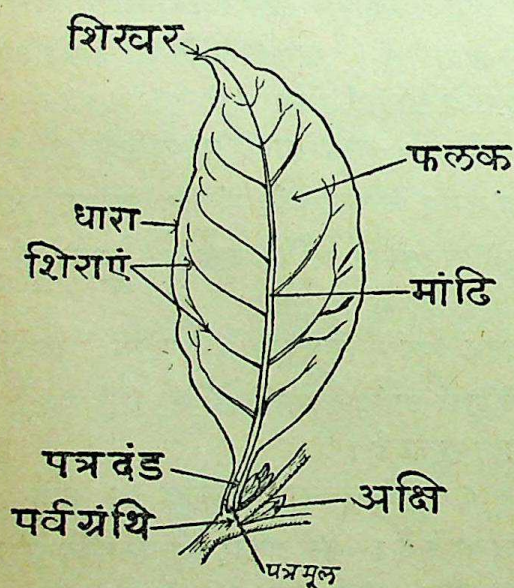 शिखर
फलक
धारा
शिराएं
मांढि
पत्रदंड
अक्षि
पर्वग्रंथि
पत्रमूल